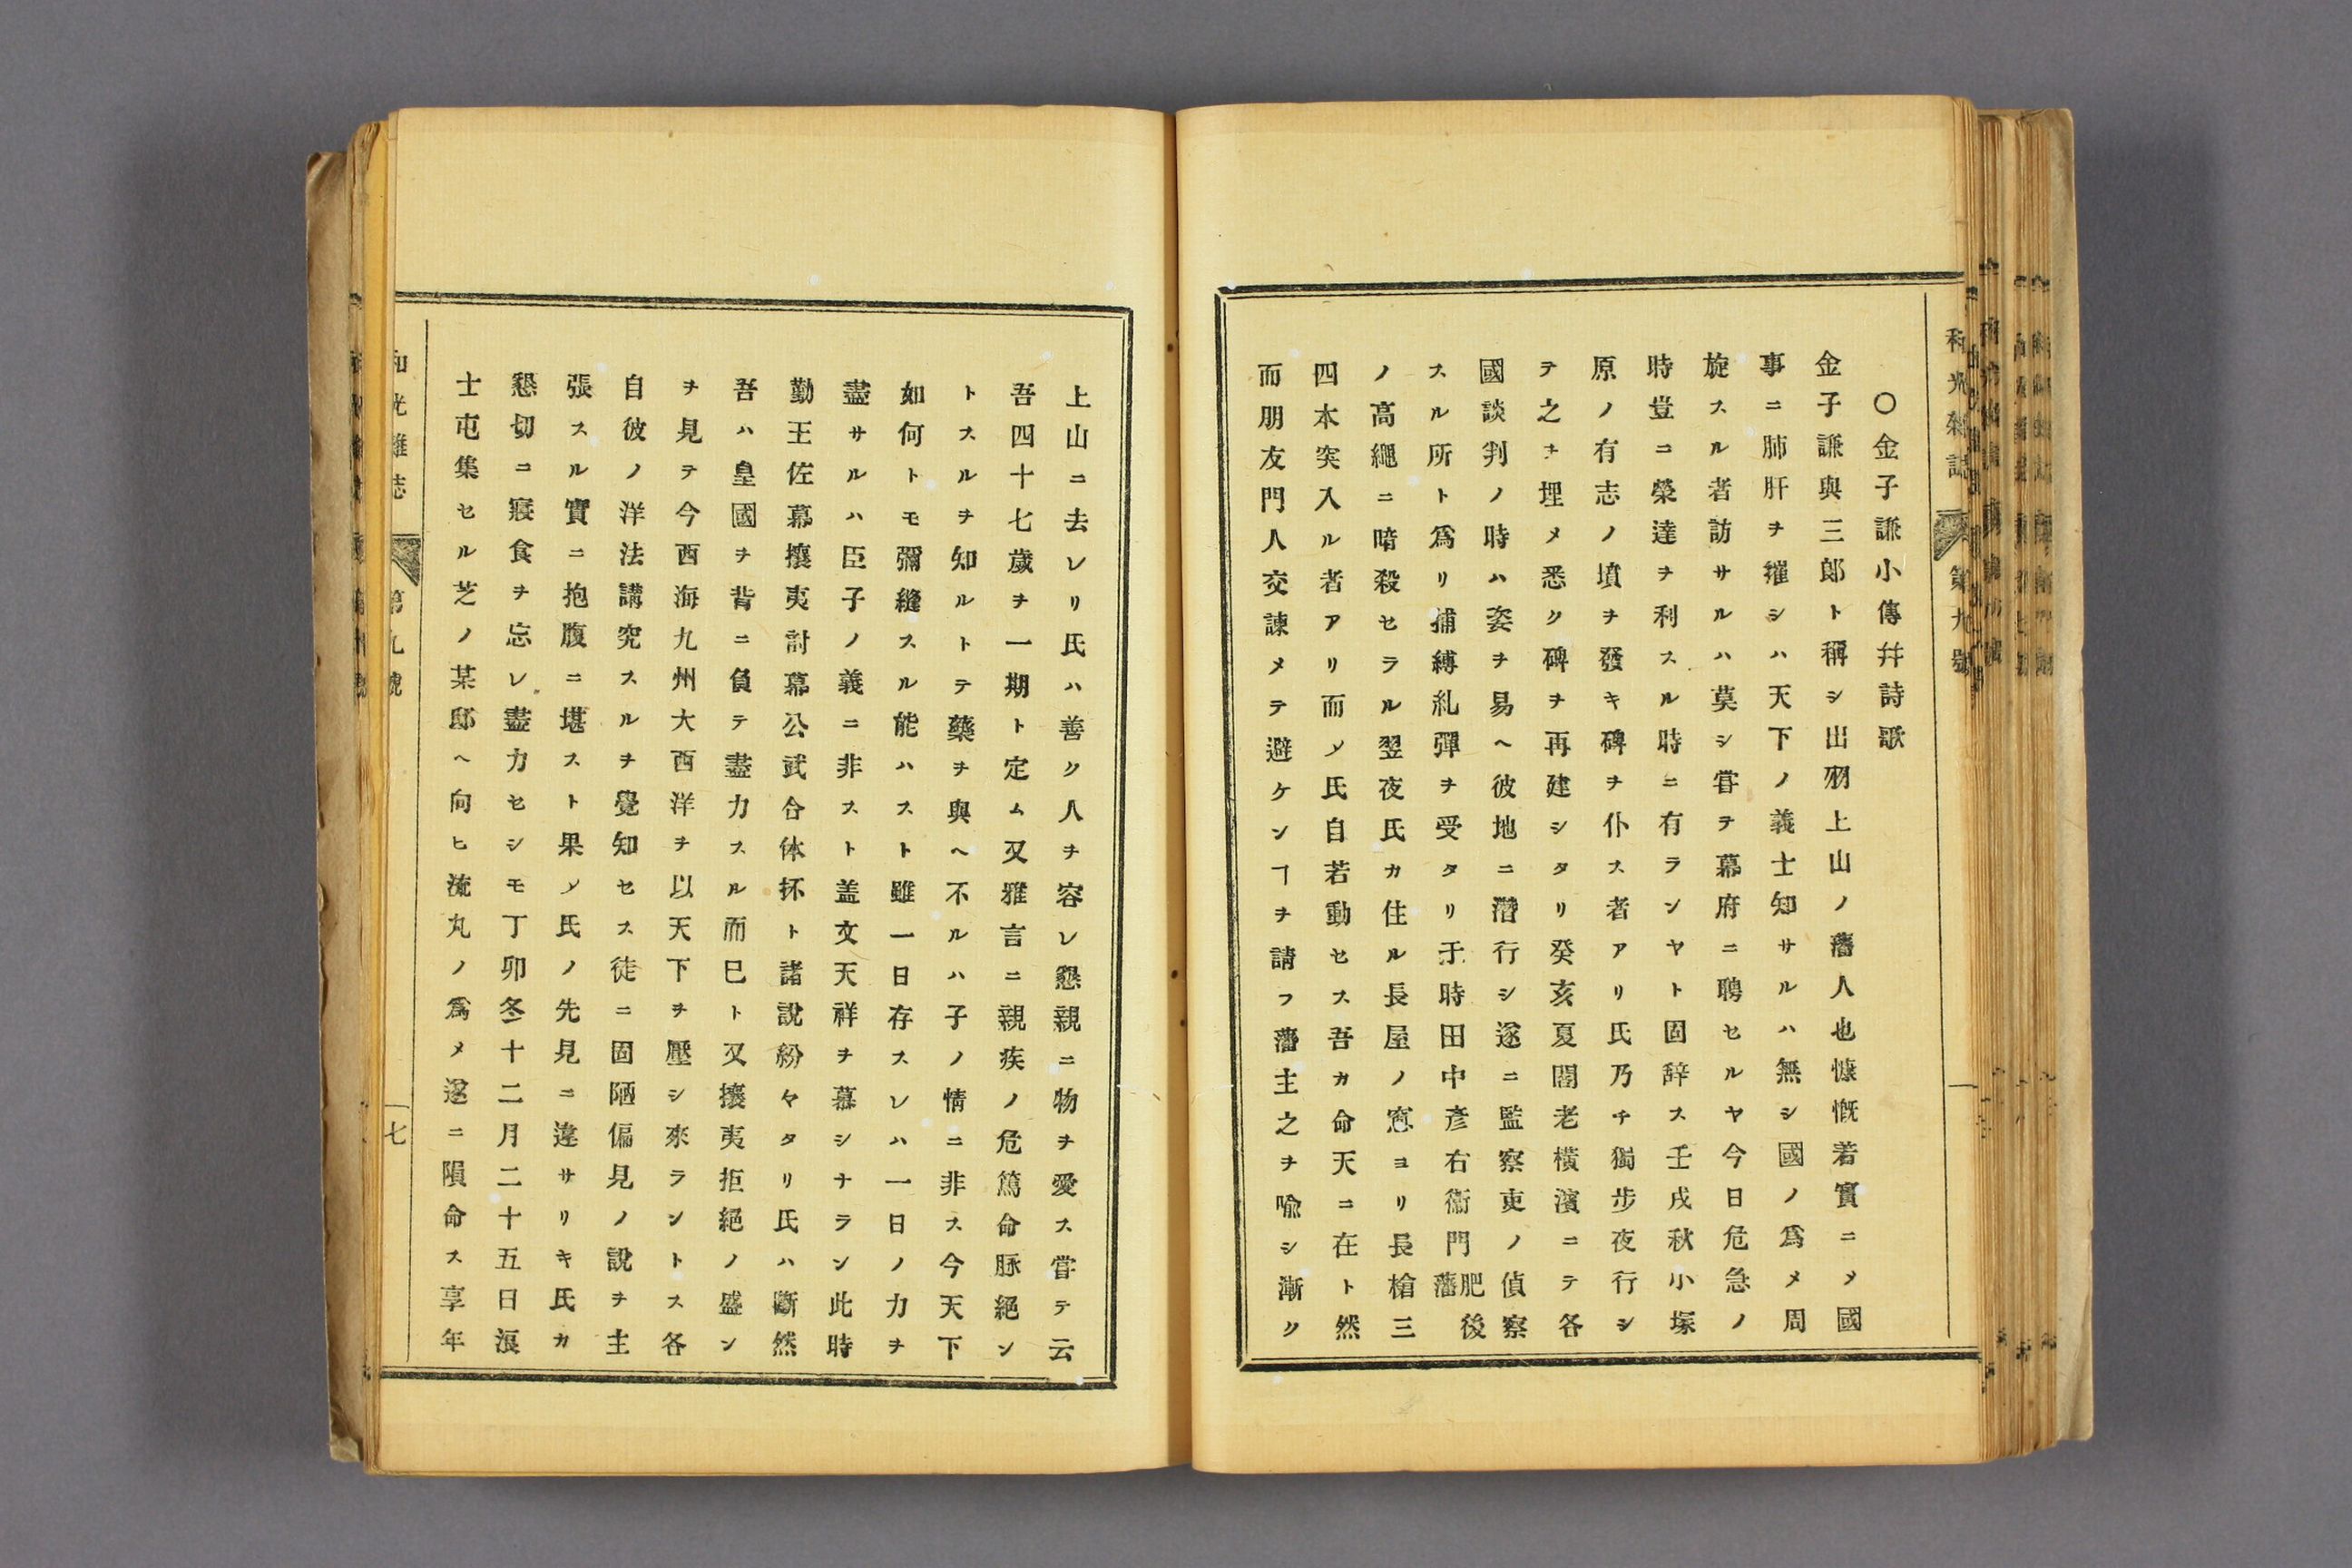 〇金子謙小傳幷詩歌
金子謙與三郎ト稱シ出羽上山ノ藩人也慷慨若實ニメ國
事ニ肺肝ヲ摧シハ天下ノ義士知サルハ無シ國ノ爲メ周
旋スル者訪サルハ莫シ甞テ幕府ニ聘セルヤ今日危急ノ
時豈ニ榮達ヲ利スル時ニ有ランヤト固辞ス壬戌秋小塚
原ノ有志ノ墳ヲ發キ碑ヲ仆ス者アリ氏乃チ獨步夜行シ
テ之ヲ埋メ悉ク碑ヲ再建シタリ癸亥夏閣老橫濱ニテ各
國談判ノ時ハ姿ヲ易ヘ彼地ニ潛行シ遂ニ監察吏ノ偵察
スル所ト爲リ捕縛糺彈ヲ受タリ于時田中彥右衞門肥後藩
ノ高繩ニ暗殺セラル翌夜氏カ住ル長屋ノ窓ヨリ長槍三
四本突入ル者アリ而メ氏自若動セス吾カ命天ニ在ト然
而朋友門人交諫メテ避ケンヿヲ請フ藩主之ヲ喩シ漸ク
和光雜誌 第九號
上山ニ去レリ氏ハ善ク人ヲ容レ懇親ニ物ヲ愛ス甞テ云
吾四十七歲ヲ一期ト定ム又雅言ニ親疾ノ危篤命脉絕ン
トスルヲ知ルトテ藥ヲ與ヘ不ルハ子ノ情ニ非ス今天下
如何トモ彌縫スル能ハスト雖一日存スレハ一日ノ力ヲ
盡サルハ臣子ノ義ニ非スト盖文天祥ヲ慕シナラン此時
勤王佐幕攘夷討幕公武合体抔ト諸說紛々タリ氏ハ斷然
吾ハ皇國ヲ背ニ負テ盡力スル而已ト又攘夷拒絕ノ盛ン
ヲ見テ今西海九州大西洋ヲ以天下ヲ壓シ來ラントス各
自彼ノ洋法講究スルヲ覺知セス徒ニ固陋偏見ノ說ヲ主
張スル實ニ抱腹ニ堪スト果メ氏ノ先見ニ違サリキ氏カ
懇切ニ寢食ヲ忘レ盡力セシモ丁卯冬十二月二十五日浪
士屯集セル芝ノ某邸ヘ向ヒ流丸ノ爲メ遂ニ隕命ス享年
和光雜誌 第九號 七